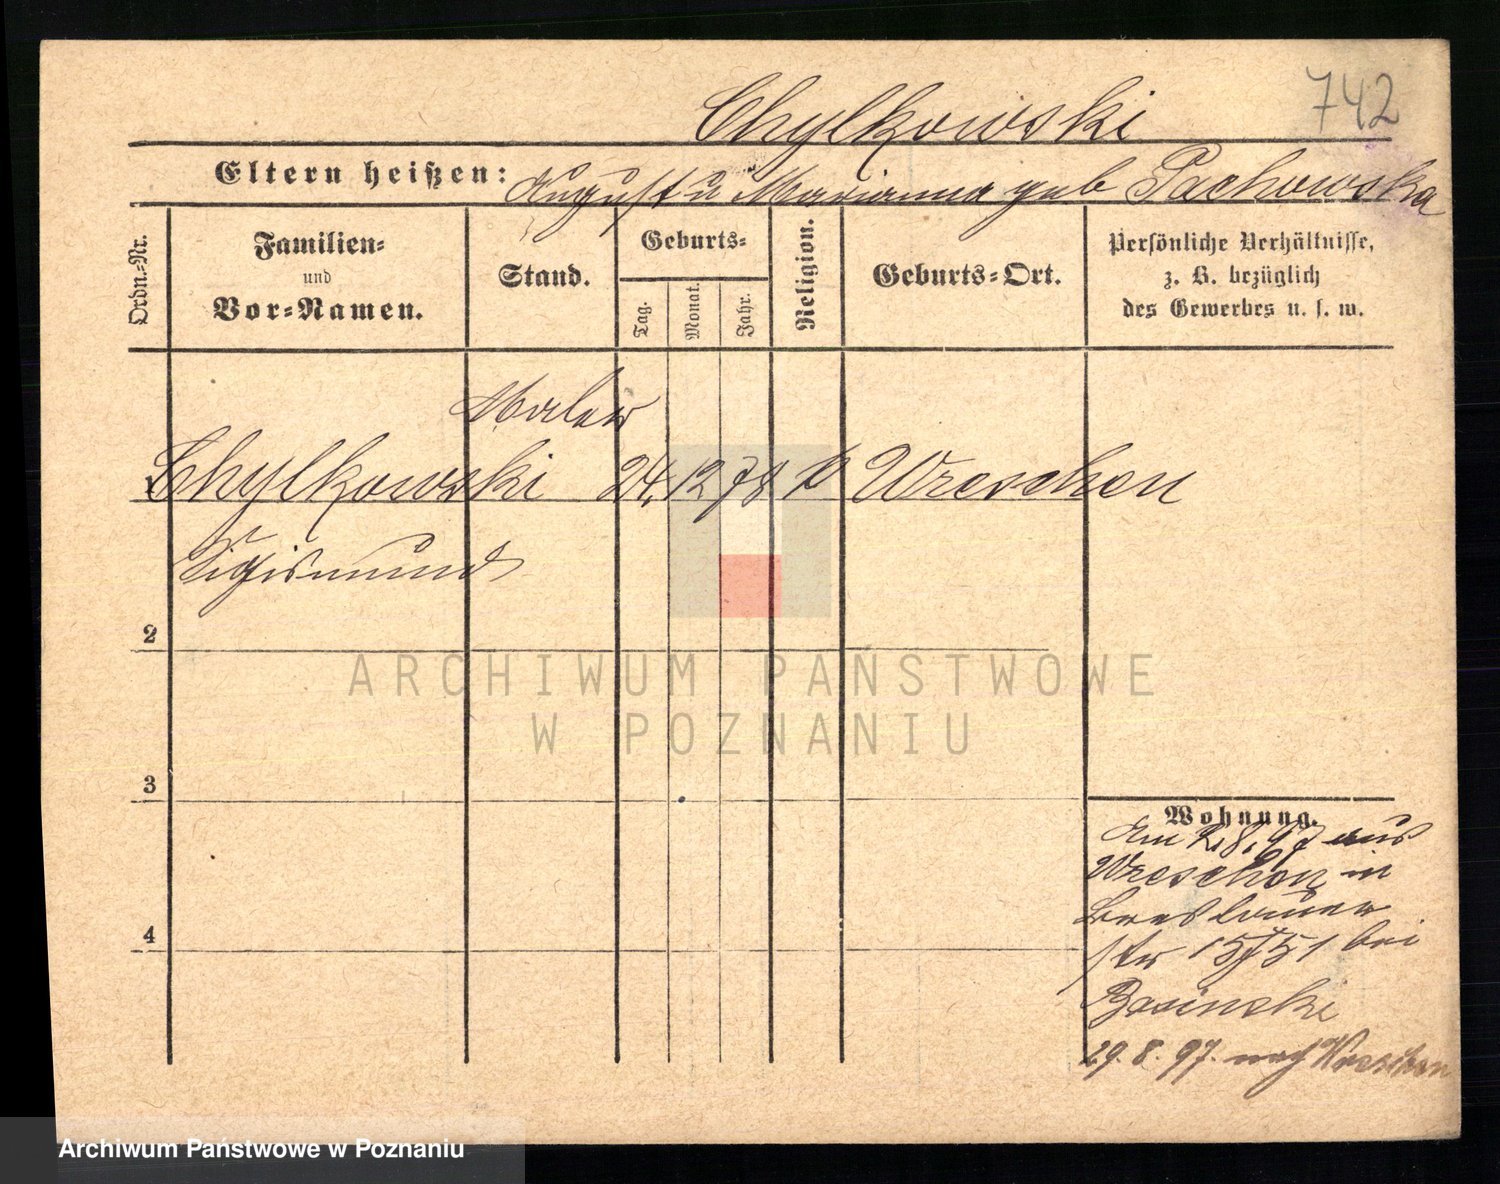 742
Chylkowski
Eltern heißen: August u Marianna geb Pachowska
Ordn.-Nr.
Familien-
und
Vor-Namen.
Stand.
Geburts-
Tag.
Monat.
Jahr.
Religion.
Geburts-Ort.
Persönliche Verhältnisse,
z. B. bezüglich
des Gewerbes u. s. w.
Maler
Chylkowski 24. 12 78 k Wreschen
Sigismund
2
ARCHIWUM PAŃSTWOWE
W POZNANIU
3
Wohnung.
Am 2.8.97 aus
Wreschen in
Breslauer
str bei
29. 8. 97. nach Wreschen
4
Archiwum Państwowe w Poznaniu